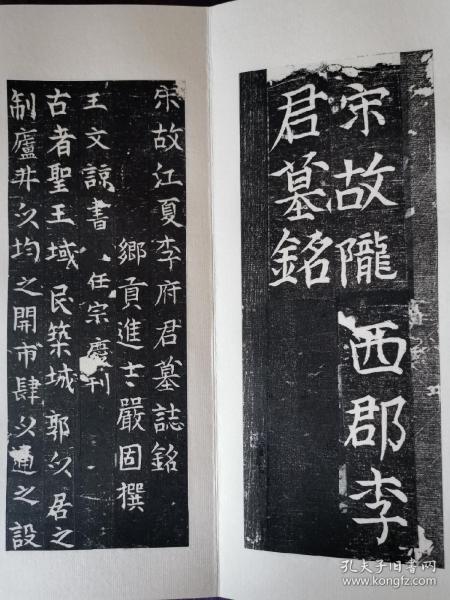 宋故隴西郡李
君墓銘
宋故江夏李府君墓誌銘
鄉貢進士嚴固撰
王文諒書 任宗慶刊
古者聖王域民築城郭以居之
制廬井以均之開市肆以通之設
孔夫子旧书网
www.kongfz.com